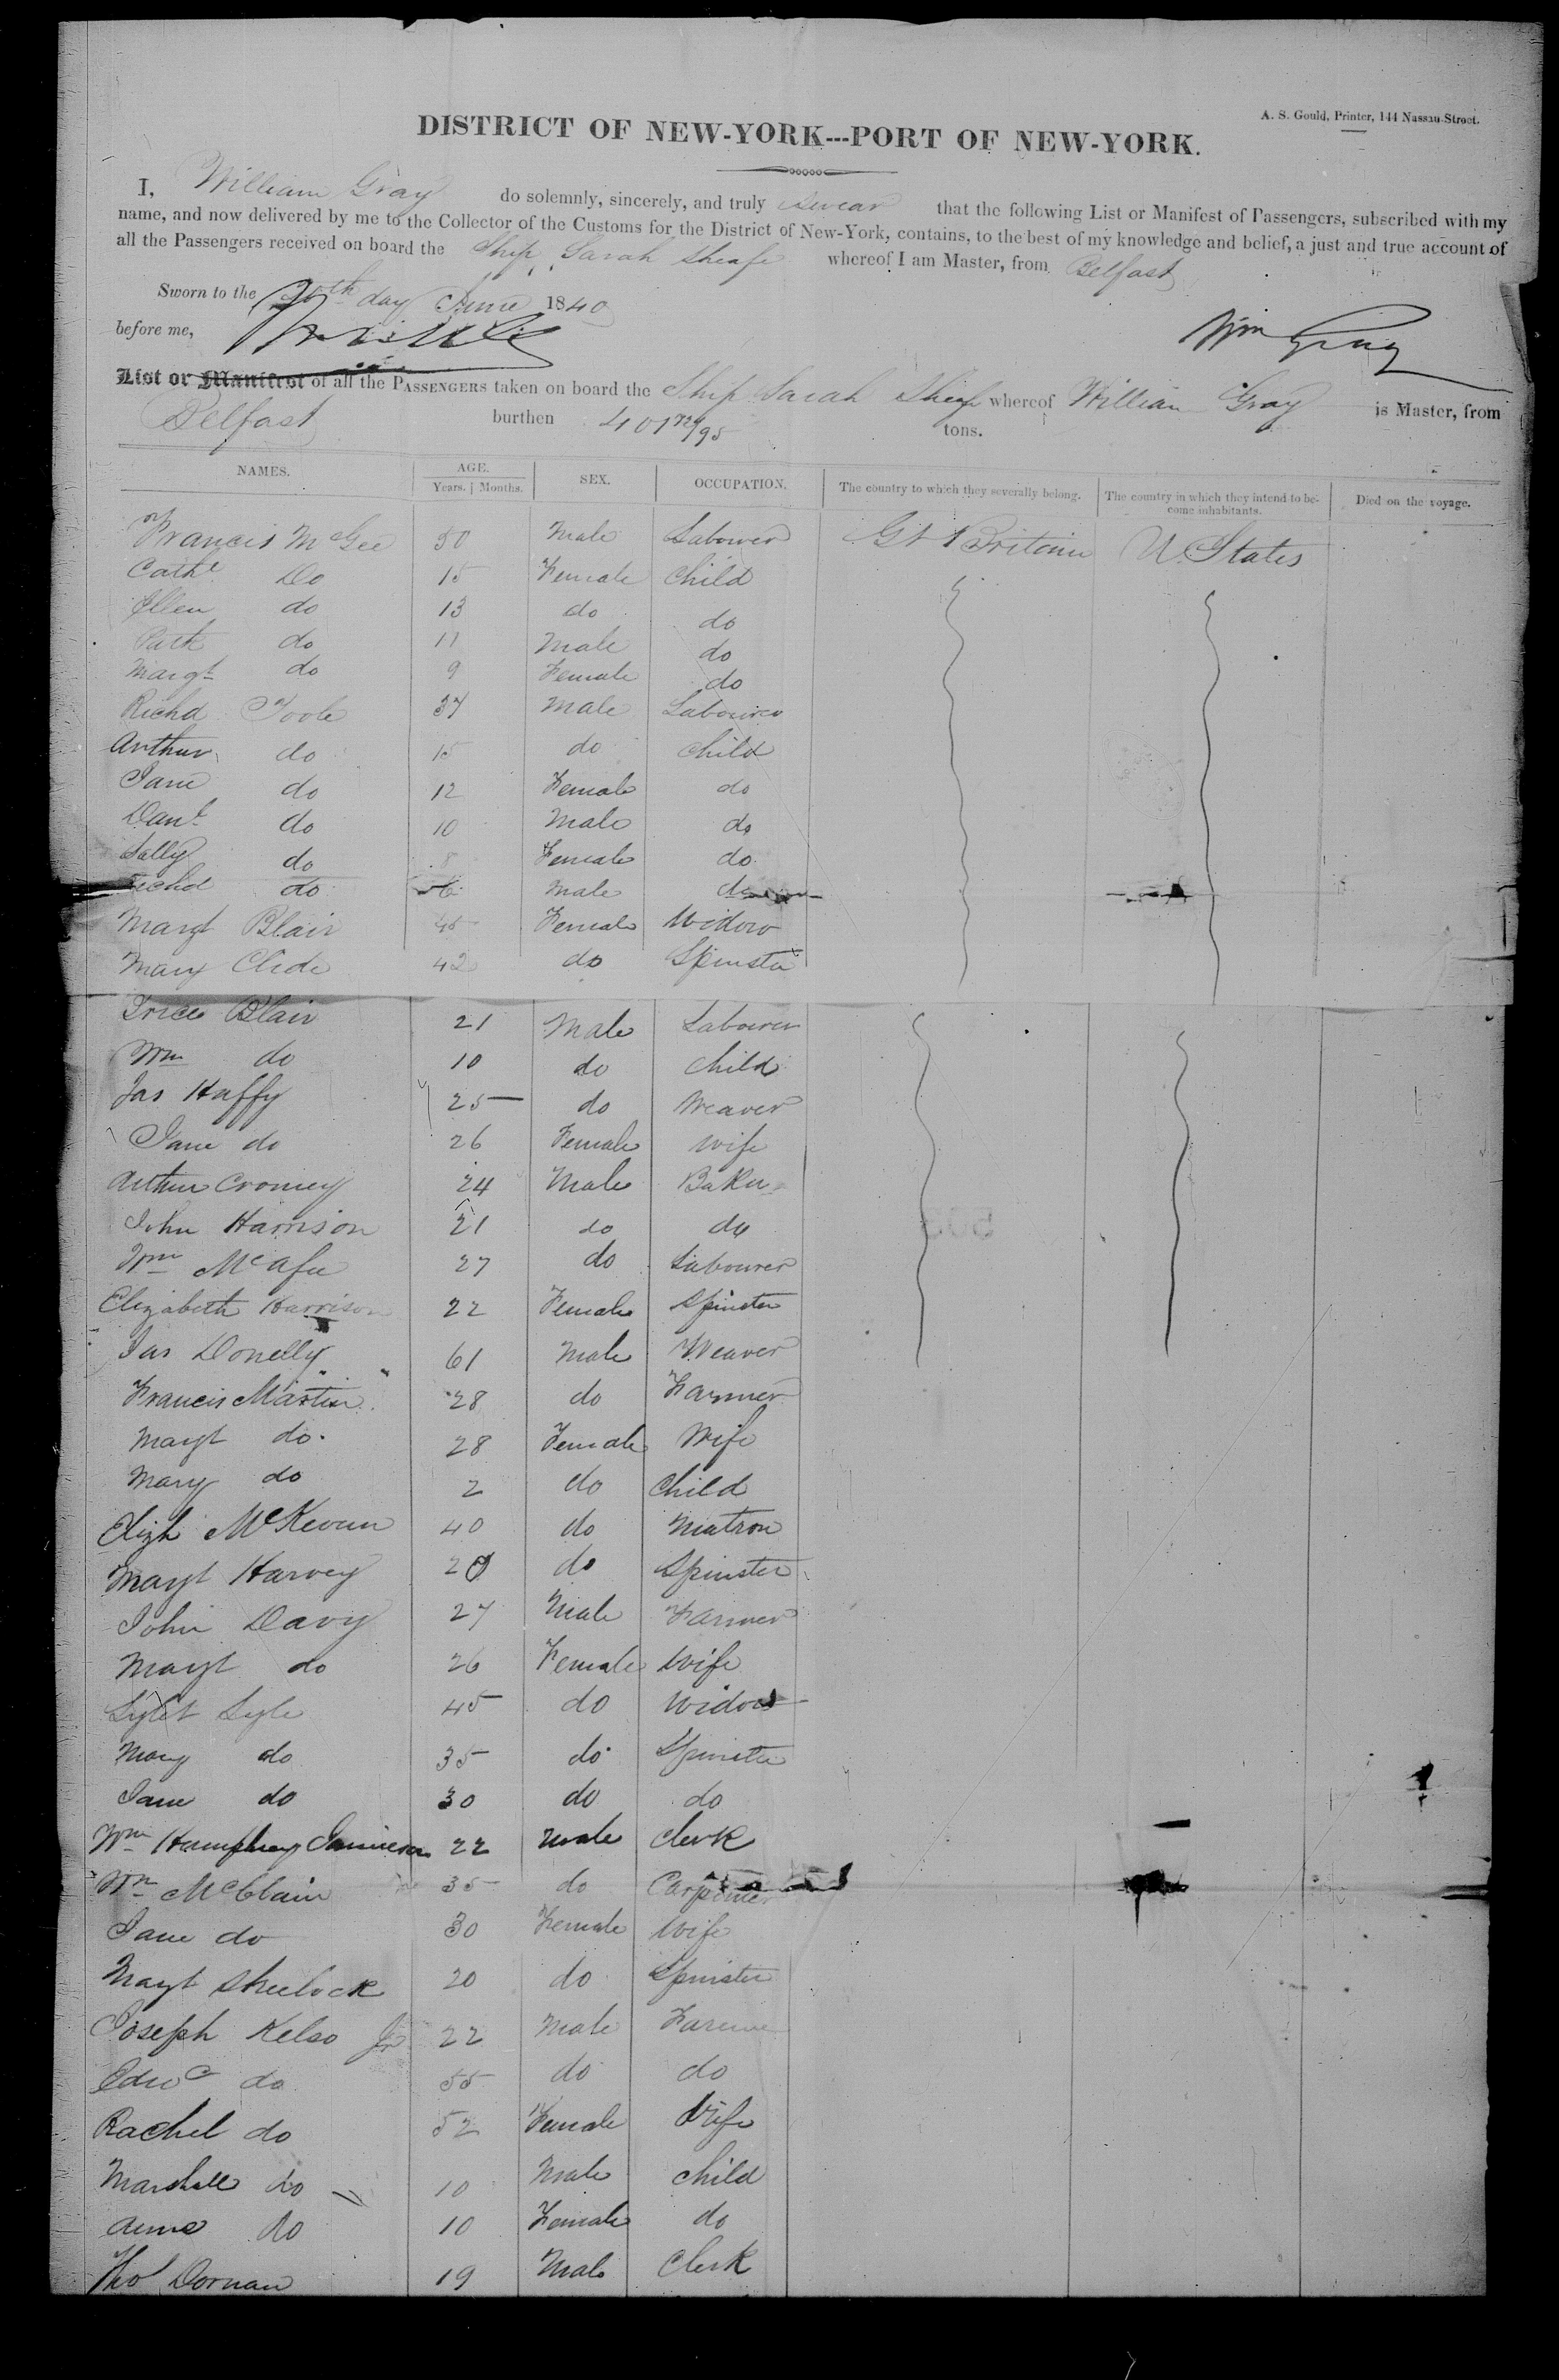 A. S. Gould, Printer, 144 Nassau-Street.
DISTRICT OF NEW-YORK---PORT OF NEW-YORK.
I, William Gray do solemnly, sincerely, and truly swear that the following List or Manifest of Passengers, subscribed with my
name, and now delivered by me to the Collector of the Customs for the District of New-York, contains, to the best of my knowledge and belief, a just and true account of
all the Passengers received on board the Ship Sarah Sheafe whereof I am Master, from Belfast
Sworn to the 20th day June 1840
before me,
Wm Gray
List or Manifest of all the PASSENGERS taken on board the Ship Sarah Sheafe whereof William Gray is Master, from
Belfast burthen 401 72/95 tons.
NAMES. AGE. Years. | Months. SEX. OCCUPATION. The country to which they severally belong. The country in which they intend to become inhabitants. Died on the voyage.
Francis McGee 50 Male Labourer Gt Britain U States
Cathe Do 15 Female Child
Ellen do 13 do do
Patk do 11 Male do
Margt do 9 Female do
Richd Toole 37 Male Labourer
Arthur do 15 do Child
Jane do 12 Female do
Danl do 10 Male do
Sally do 8 Female do
Richd do 6 Male do
Margt Blair 45 Female Widow
Mary Clide 42 do Spinster
Blair 21 Male Labourer
Wm do 10 do Child
Jas Haffy 25 do Weaver
Jane do 26 Female Wife
Arthur Cromey 24 Male Baker
John Harrison 21 do do
Wm McAfee 27 do Labourer
Elizabeth Harrison 22 Female Spinster
Jas Donelly 61 Male Weaver
Francis Martin 28 do Farmer
Margt do 28 Female Wife
Mary do 2 do Child
Elizh McKevun 40 do Matron
Margt Harvey 20 do Spinster
John Davy 27 Male Farmer
Margt do 26 Female Wife
Lyle 45 do Widow
Mary do 35 do Spinster
Jane do 30 do do
Wm Humphrey Jamieson 22 Male Clerk
Wm McClain 35 do Carpenter
Jane do 30 Female Wife
Margt Sheelock 20 do Spinster
Joseph Kelso Jr 22 Male Farmer
Edwd do 55 do do
Rachel do 52 Female Wife
Marshall do 10 Male Child
Anne do 10 Female do
Thos Dornan 19 Male Clerk